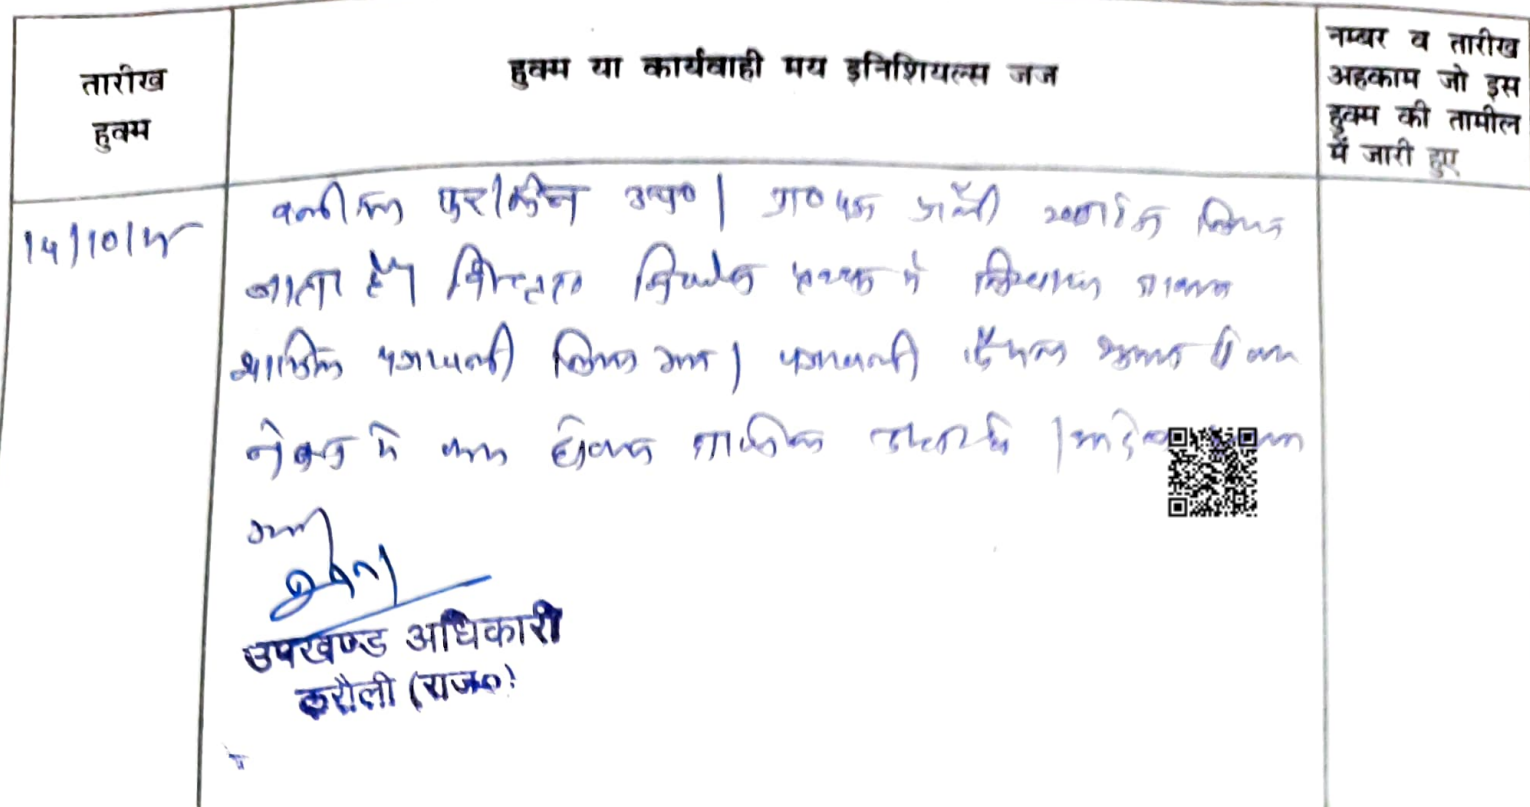 तारीख
हुक्म
हुक्म या कार्यवाही मय इनिशियल्स जज
नम्बर व तारीख
अहकाम जो इस
हुक्म की तामील
में जारी हुए
14/10/25
वकील फरीकेन उप०। प्रा० पत्र किया
जाता है। विस्तृत निर्णय पृथक से लिखाया जाकर
शामिल पत्रावली किया गया। पत्रावली फैसल शुमार होकर
नंबर से कम होकर दाखिल दफ्तर हो।
गया।
उपखण्ड अधिकारी
करौली (राज०)